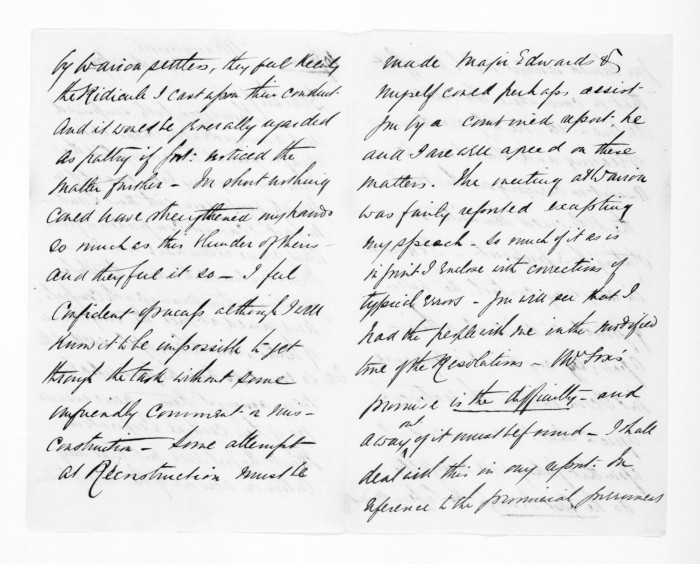 by Wairoa settlers, they feel keenly
the Ridicule I cast upon their conduct.
And it would be generally regarded
as paltry if Govt: noticed the
matter further - In short nothing
could have strengthened my hands
so much as this blunder of theirs -
and they feel it so - I feel
confident of success although I well
know it to be impossible to get
through the task without some
unfriendly comment a mis-
construction - Some attempt
at Reconstruction must be
made Major Edwards &
myself could perhaps assist
you by a combined report. he
and I are well agreed on these
matters. The meeting at Wairoa
was fairly reported excepting
my speech - so much of it as is
in print I enclose with corrections of
typical errors - You will see that I
had the people with me in the modified
tone of the Resolutions - Mr Fox's
promise is the difficulty - and
a way out of it must be found - I shall
deal with this in my report. In
reference to the provincial prisoners